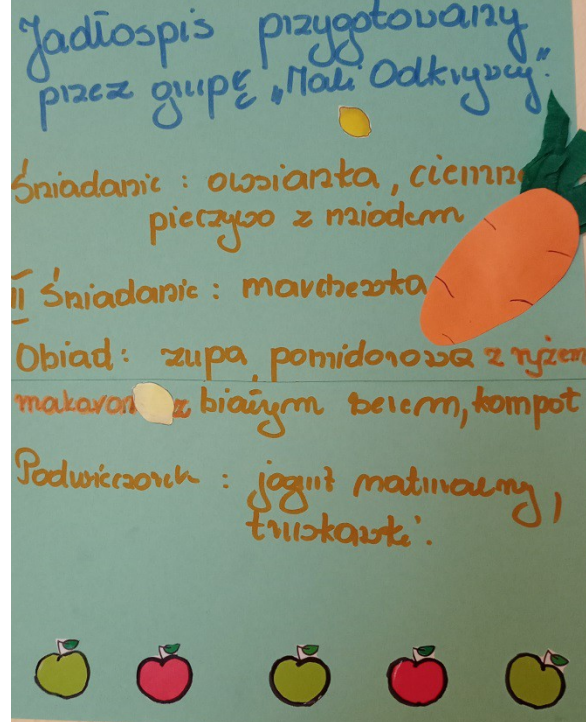 Jadłospis przygotowany
przez grupę „Mali Odkrywcy".
Śniadanie : owsianka, ciemne
pieczywo z miodem
II Śniadanie : marchewka
Obiad : zupa pomidorowa z ryżem
makaron z białym serem, kompot
Podwieczorek : jogurt naturalny,
truskawki.